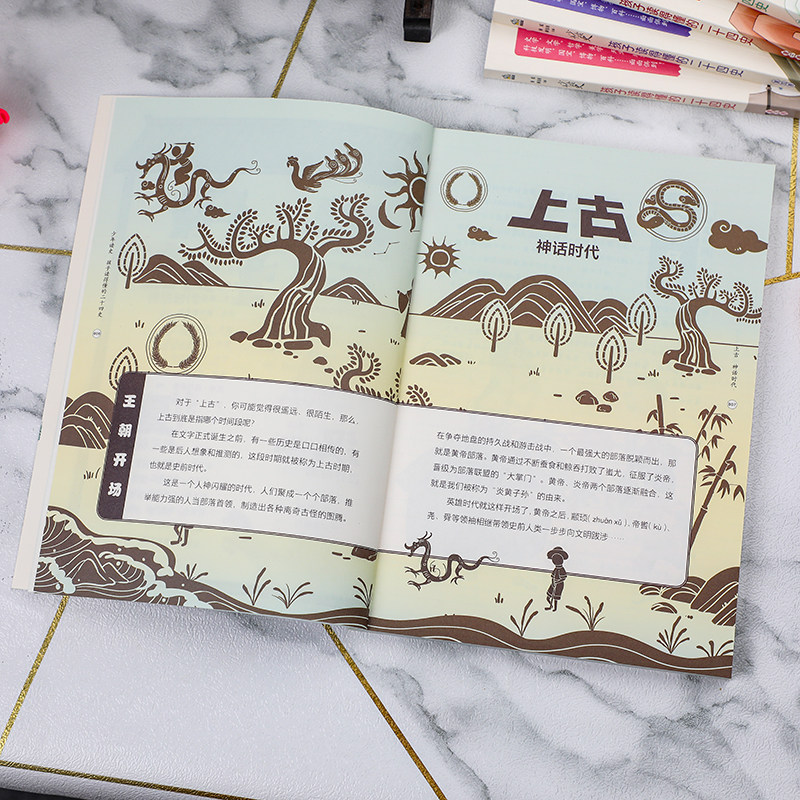 孩子读得懂的二十四史
孩子读得懂的二十四史
孩子读得懂的二十四史
少年读史 孩子读得懂的二十四史
王朝开场
对于“上古”，你可能觉得很遥远、很陌生，那么，
上古到底是指哪个时间段呢？
在文字正式诞生之前，有一些历史是口口相传的，有
一些是后人想象和推测的，这段时期就被称为上古时期，
也就是史前时代。
这是一个人神闪耀的时代，人们聚成一个个部落，推
举能力强的人当部落首领，制造出各种离奇古怪的图腾。
上古
神话时代
上古 神话时代
007
在争夺地盘的持久战和游击战中，一个最强大的部落脱颖而出，那
就是黄帝部落。黄帝通过不断蚕食和鲸吞打败了蚩尤，征服了炎帝，
晋级为部落联盟的“大掌门”。黄帝、炎帝两个部落逐渐融合，这
就是我们被称为“炎黄子孙”的由来。
英雄时代就这样开场了，黄帝之后，颛顼（zhuān xū）、帝喾（kù）、
尧、舜等领袖相继带领史前人类一步步向文明跋涉……